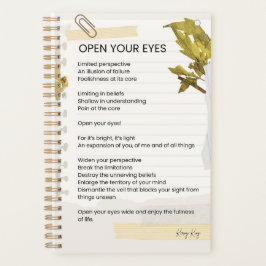 OPEN YOUR EYES
Limited perspective
An illusion of failure
Foolishness at its core
Limiting in beliefs
Shallow in understanding
Pain at the core
Open your eyes!
For it's bright, it's light
An expansion of you, of me and of all things
Widen your perspective
Break the limitations
Destroy the unnerving beliefs
Enlarge the territory of your mind
Dismantle the veil that blocks your sight from
things unseen
Open your eyes wide and enjoy the fullness
of life.